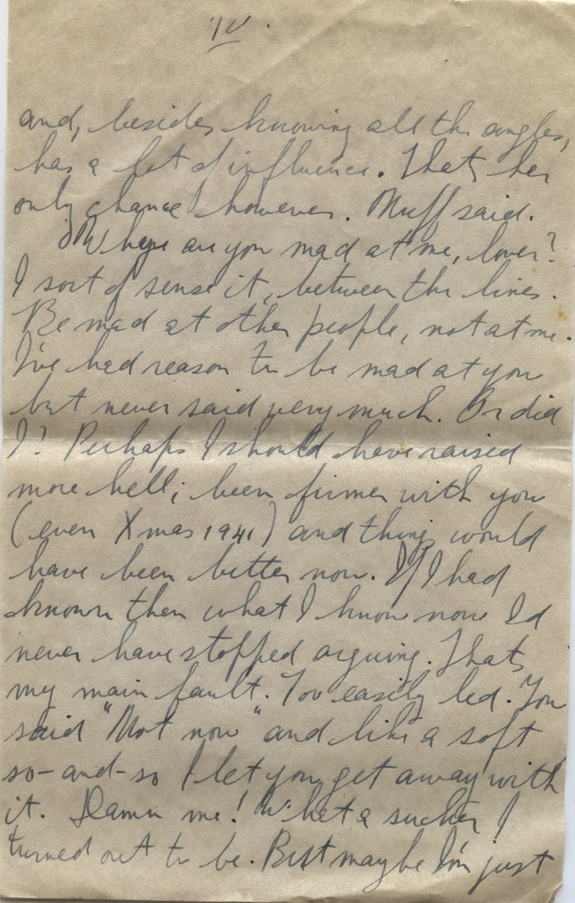 IV.
and, besides knowing all the angles,
has a lot of influence. Thats her
only chance however. Nuff said.
Why are you mad at me, lover?
I sort of sense it, between the lines.
Be mad at other people, not at me.
I've had reason to be mad at you
but never said very much. Or did
I? Perhaps I should have raised
more hell; been firmer with you
(even Xmas 1941) and things would
have been better now. If I had
known then what I know now I'd
never have stopped arguing. Thats
my main fault. Too easily led. You
said "Not now" and like a soft
so-and-so I let you get away with
it. Damn me! What a sucker I
turned out to be. But maybe I'm just